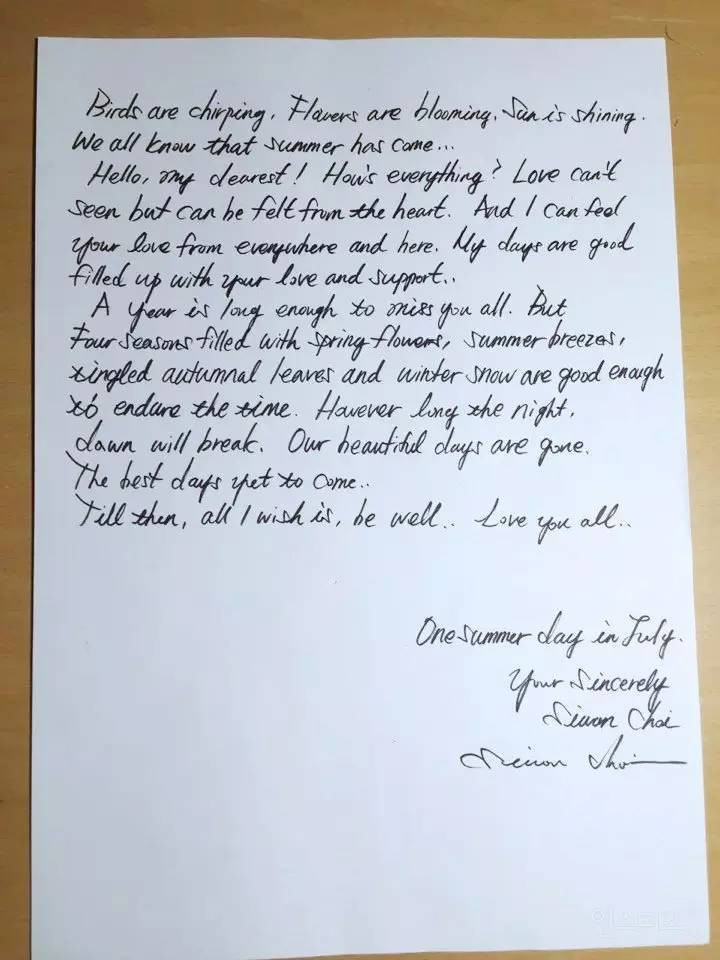 Birds are chirping. Flowers are blooming. Sun is shining.
We all know that summer has come...
Hello, my dearest! How's everything? Love can't
seen but can be felt from the heart. And I can feel
your love from everywhere and here. My days are good
filled up with your love and support..
A year is long enough to miss you all. But
Four seasons filled with spring flowers, summer breezes,
tingled autumnal leaves and winter snow are good enough
to endure the time. However long the night,
dawn will break. Our beautiful days are gone.
The best days yet to come..
Till then, all I wish is, be well.. Love you all..
One summer day in July.
Your Sincerely
Siwon Choi
Siwon Choi
인스티즈